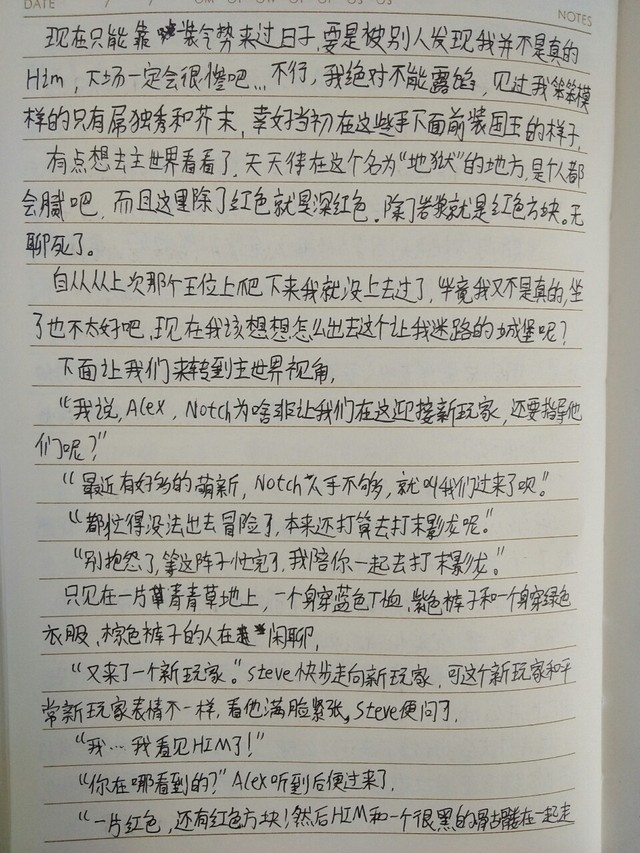 DATE / /
NOTES
现在只能靠装气势来过日子,要是被别人发现我并不是真的
Him,下场一定会很惨吧...不行,我绝对不能露馅,见过我笨笨模
样的只有屌独秀和芥末,幸好当初在这些手下面前装国王的样子,
有点想去主世界看看了,天天待在这个名为“地狱”的地方,是个人都
会腻吧,而且这里除了红色就是深红色.除了岩浆就是红色方块。无
聊死了。
自从从上次那个王位上爬下来我就没上去过了,毕竟我又不是真的,坐
了也不太好吧,现在我该想想怎么出去这个让我迷路的城堡呢?
下面让我们来转到主世界视角,
“我说,Alex,Notch为啥非让我们在这迎接新玩家,还要指导他
们呢?”
“最近有好多的萌新,Notch人手不够,就叫我们过来了呗。”
“都忙得没法出去冒险了,本来还打算去打末影龙呢。”
“别抱怨了,等这阵子忙完了,我陪你一起去打末影龙。”
只见在一片青青草地上,一个身穿蓝色T恤、紫色裤子和一个身穿绿色
衣服、棕色裤子的人在闲聊,
“又来了一个新玩家。”Steve快步走向新玩家,可这个新玩家和平
常新玩家表情不一样,看他满脸紧张,Steve便问了,
“我…我看见HIM了!”
“你在哪看到的?”Alex听到后便过来了,
“一片红色,还有红色方块!然后HIM和一个很黑的骨骷髅在一起走